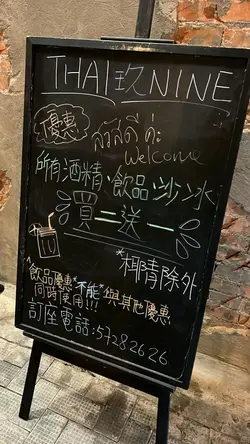 THAI玖NINE
優惠
สวัสดี ค่ะ
welcome
所有酒精、飲品、沙冰
買二送一
*椰青除外
飲品優惠*不能*與其他優惠
同時使用!!!
訂座電話:57282626